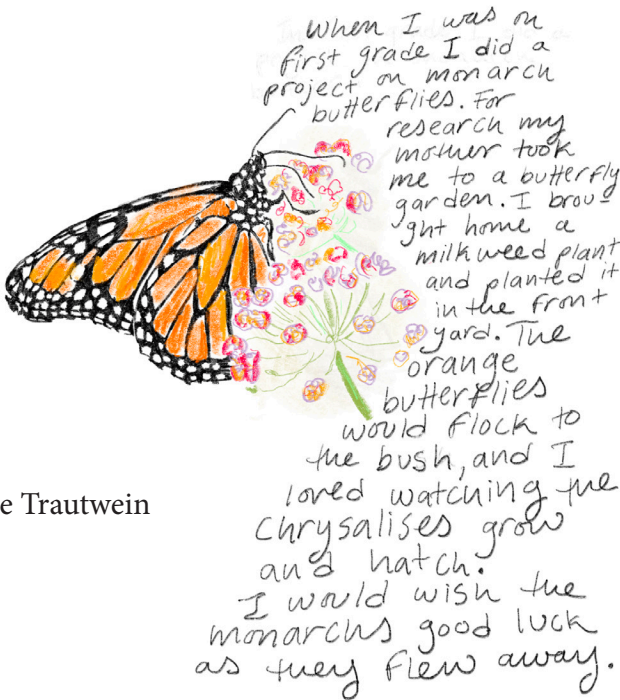 When I was on
first grade I did a
project on monarch
butterflies. For
research my
mother took
me to a butterfly
garden. I brou-
ght home a
milkweed plant
and planted it
in the front
yard. The
orange
butterflies
would flock to
the bush, and I
loved watching the
chrysalises grow
and hatch.
I would wish the
monarchs good luck
as they flew away.
e Trautwein